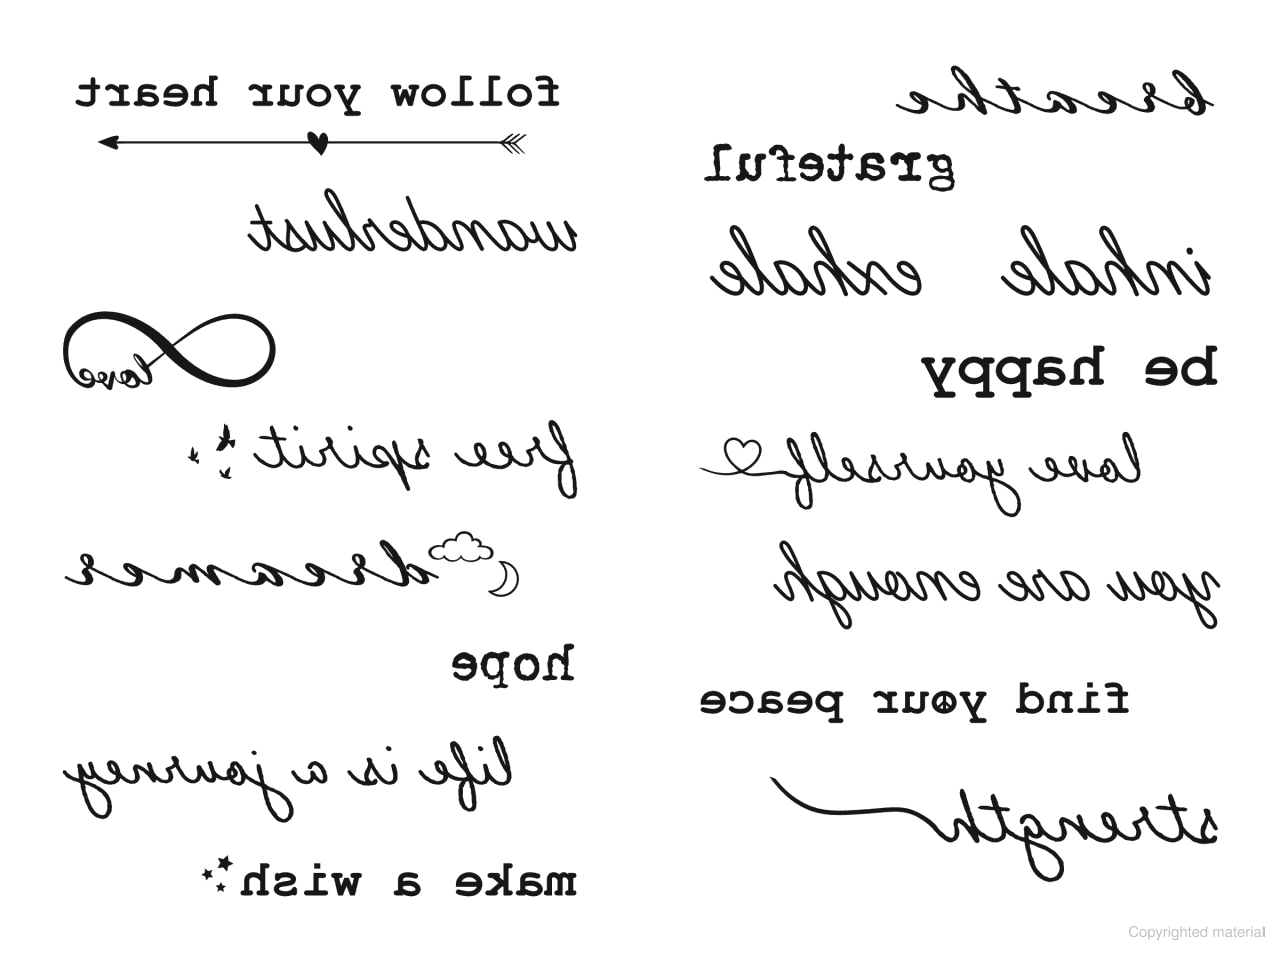 follow your heart
wanderlust
love
free spirit
dreamer
hope
life is a journey
make a wish
breathe
grateful
inhale exhale
be happy
love yourself
you are enough
find your peace
strength
Copyrighted material